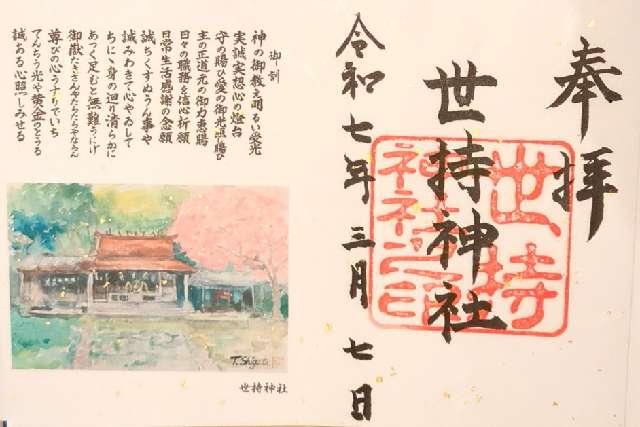 奉拝
世持神社
世持神社之印
令和七年三月七日
御訓
神の御教え明るい栄光
実誠実想心の燈台
守の賜ひ愛の御光照賜ひ
主の正道元の御力恵賜
日々の職務を信心祈願
日常生活感謝の念願
誠ちくすぬうん事や
誠みわきて心やゐして
ちにゝ身の廻り清らかに
あつく足むと無難うにげ
尊びの心うすりでいち
てんちう光や黄金のとうる
誠ある心照しみせる
T. Shigeta
世持神社